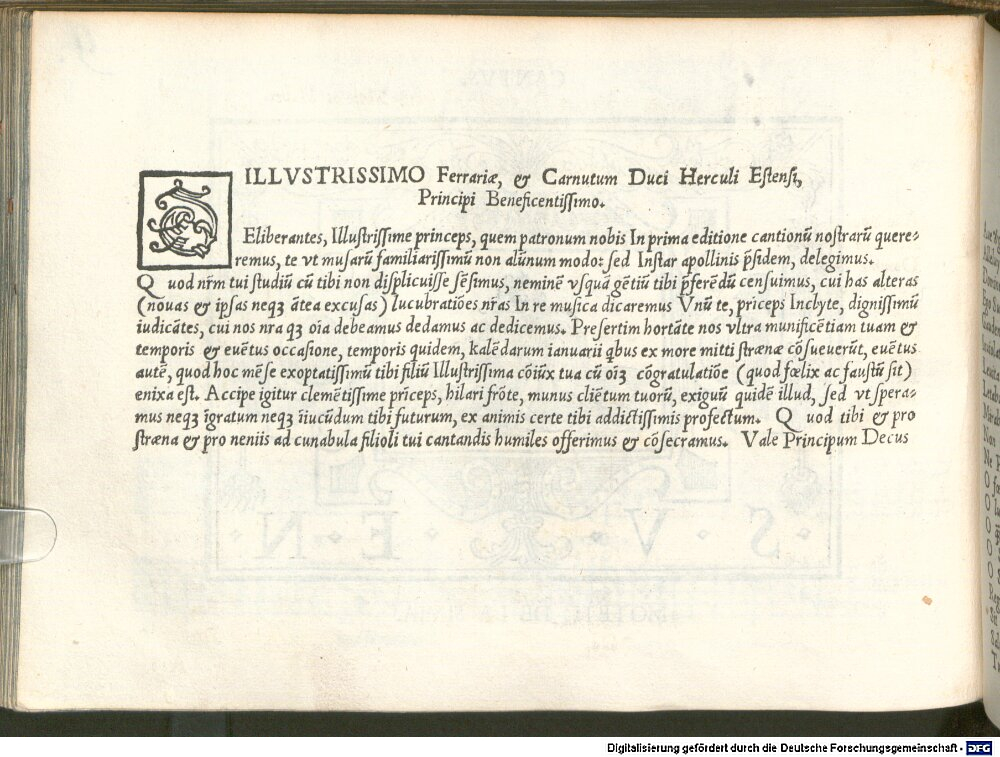 ILLVSTRISSIMO Ferrariæ, & Carnutum Duci Herculi Estensi,
Principi Beneficentissimo.
DEliberantes, Illustrissime princeps, quem patronum nobis In prima editione cantionū nostrarū quere-
remus, te vt musarū familiarissimū non alūnum modo: sed Instar apollinis p̄sidem, delegimus.
Quod nr̄m tui studiū cū tibi non displicuisse sēsimus, neminē vsquā gētiū tibi p̄ferēdū censuimus, cui has alteras
(nouas & ipsas neqꝫ ātea excusas) lucubratiōes nr̄as In re musica dicaremus Vnū te, prīceps Inclyte, dignissimū
iudicātes, cui nos nra qꝫ oīa debeamus dedamus ac dedicemus. Presertim hortāte nos vltra munificētiam tuam &
temporis & euētus occasione, temporis quidem, kalēdarum ianuarii qbus ex more mitti strænæ cōsueuerūt, euētus
autē, quod hoc mēse exoptatissimū tibi filiū Illustrissima cōiūx tua cū oīꝫ cōgratulatiōe (quod fœlix ac faustū sit)
enixa est. Accipe igitur clemētissime prīceps, hilari frōte, munus cliētum tuorū, exiguū quidē illud, sed vt spera-
mus neqꝫ īgratum neqꝫ īiucūdum tibi futurum, ex animis certe tibi addictissimis profectum. Quod tibi & pro
stræna & pro neniis ad cunabula filioli tui cantandis humiles offerimus & cōsecramus. Vale Principum Decus
Digitalisierung gefördert durch die Deutsche Forschungsgemeinschaft - DFG